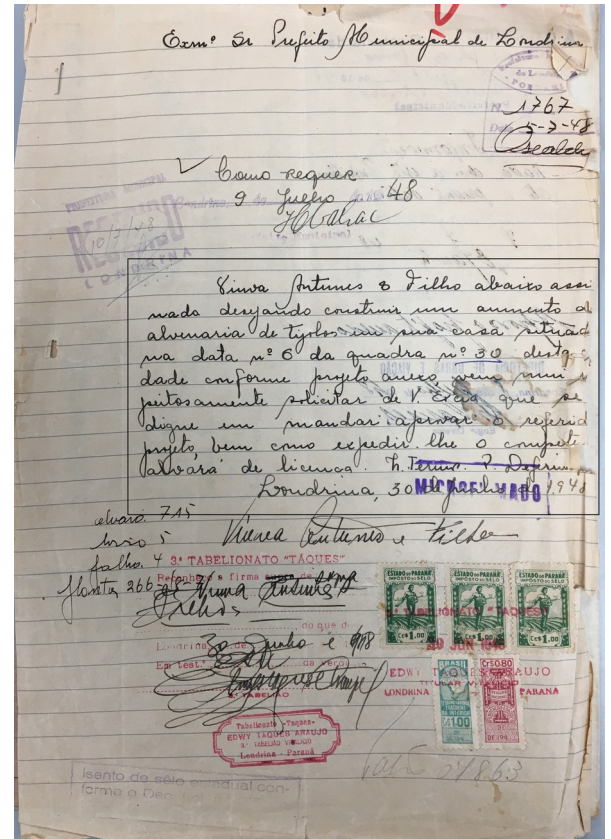 Exmº Sr Prefeito Municipal de Londrina
Nº 1767
Data 5-7-48
Oswaldo
Como requer
9 Julho 48
PREFEITURA MUNICIPAL
10/7/48
LONDRINA
Viuva Antunes & Filho abaixo assi
nada desejando construir um aumento d
alvenaria de tijolos em sua casa situad
na data nº 6 da quadra nº 30 desta
dade conforme projeto anexo, vem mui
peitosamente solicitar de V. Excia que se
digne em mandar aprovar o referid
projeto, bem como expedir-lhe o compete
alvará de licença. N. Termos P. Deferim
Londrina, 30 de Junho d 1948
MICROFILMADO
alvará 715
livro 5
Viuva Antunes e Filho
folha 4
3º TABELIONATO "TAQUES"
Reconheço a firma supra de
Viuva Antunes
Filhos
do que d
Londrina, 30 Junho e 1948
Em test. da verd
3º TABELIÃO
ESTADO DO PARANÁ
IMPOSTO DO SÊLO
Cr$ 1,00
ESTADO DO PARANÁ
IMPOSTO DO SÊLO
Cr$ 1,00
ESTADO DO PARANÁ
IMPOSTO DO SÊLO
Cr$ 1,00
TABELIONATO "TAQUES"
JUN 1948
EDWY TAQUES ARAUJO
LONDRINA PARANÁ
BRASIL
Cr$0,80
Tabelionato -Taques-
EDWY TAQUES ARAUJO
3º TABELIÃO VITALICIO
Londrina - Paraná
Isento de sêlo estadual con-
forme o Dec.